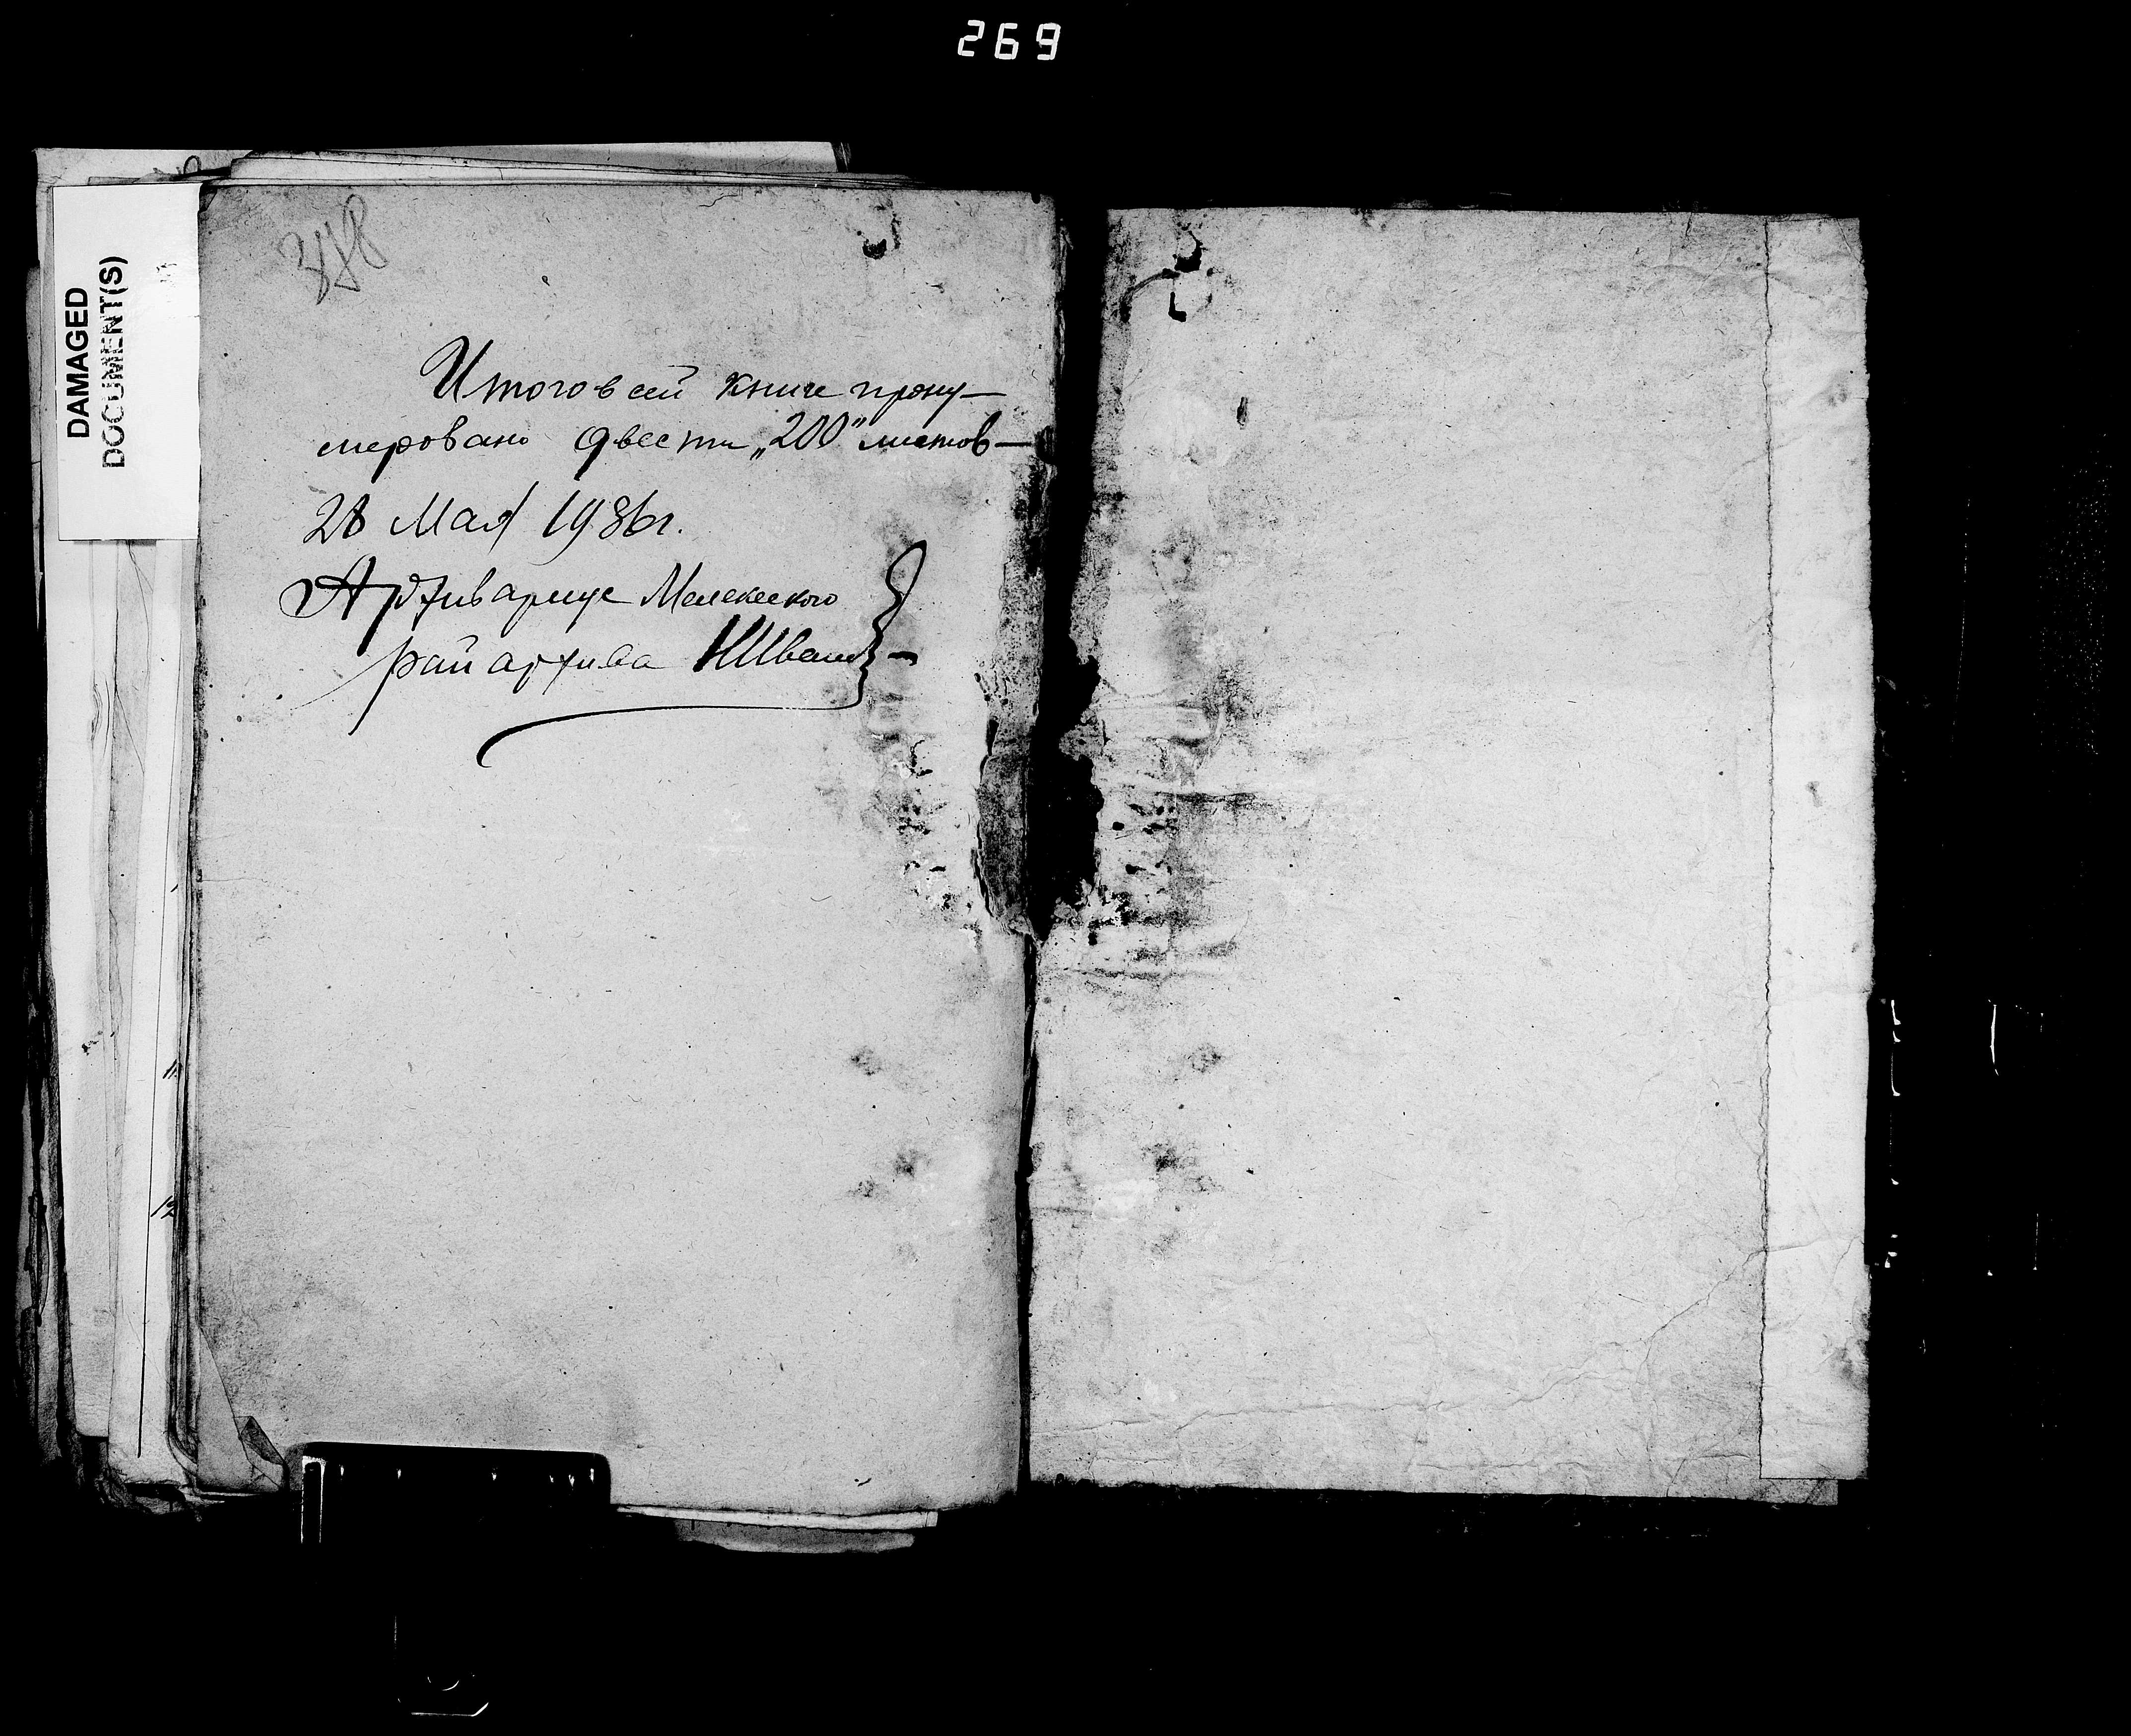 269
DAMAGED
DOCUMENT(S)
Итого в сей книге прону-
меровано двести „200" листов-
28 Мая 1936 г.
Архивариус Мелекесского
райархива
11
12